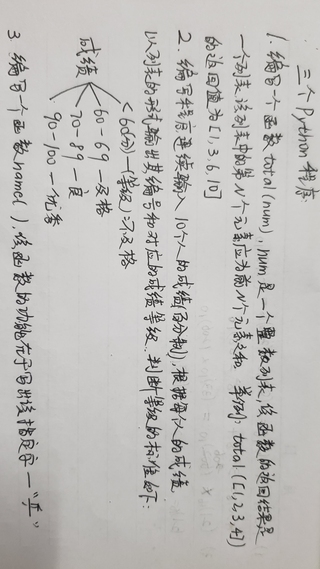 三个Python程序
1. 编写一个函数total(num), num是一个整数列表,该函数的返回结果是
一个列表,该列表中的第N个元素应为前N个元素之和. 举例: total([1,2,3,4])
的返回值为[1,3,6,10]
2. 编写程序连续输入10个人的成绩(百分制),根据每人的成绩
以列表的形式输出其编号和对应的成绩等级. 判断等级的标准如下:
<60(分)—(等级):不及格
成绩
60-69—及格
70-89—良
90-100—优秀
3. 编写一个函数name(),该函数的功能在于写出该指定字—"平"